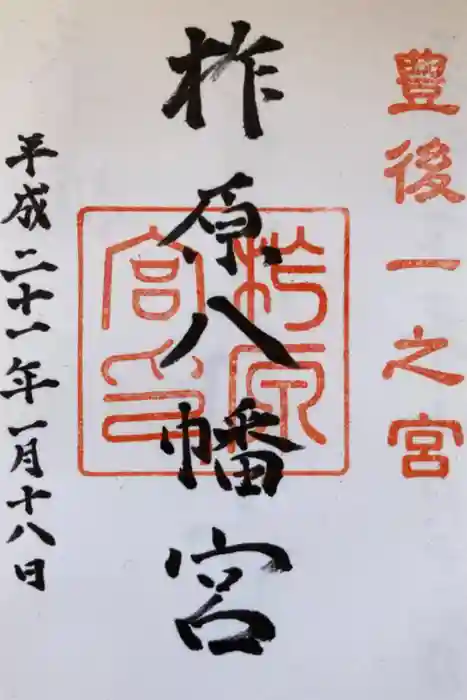 豊後一之宮
柞原八幡宮
柞原
宮印
平成二十一年一月十八日